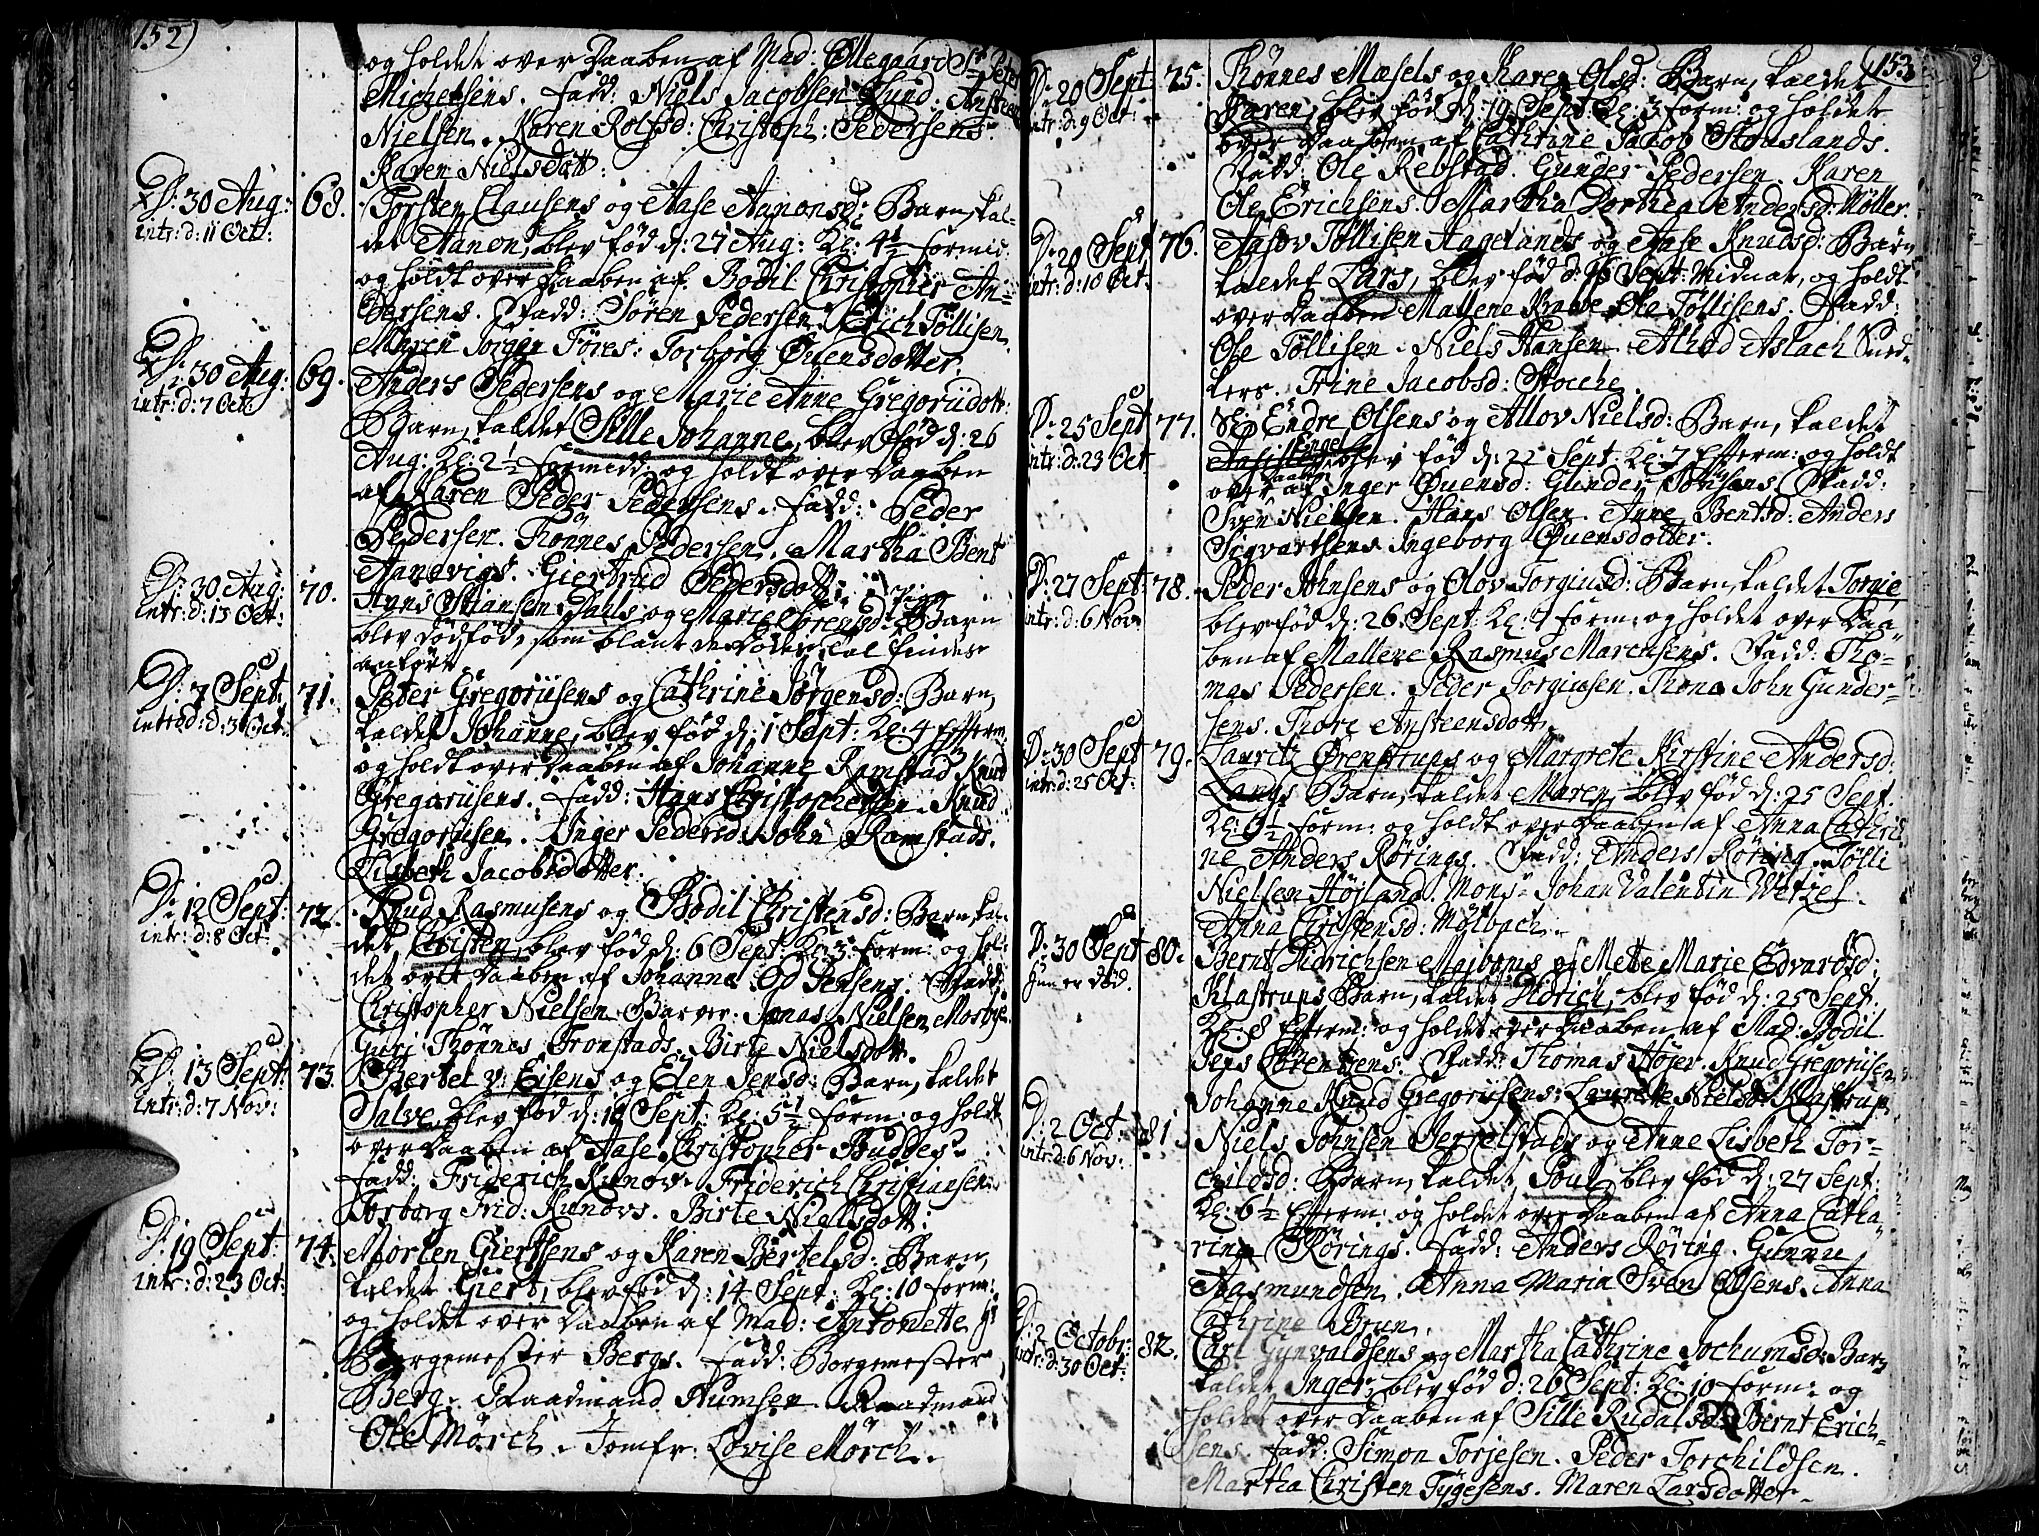 152)
og holdet over Daaben af Mad: Ollegaard Sr Peter
Michelsens. Fadd: Niels Jacobsen Lund. Ansteen
Nielsen. Karen Rolfsd: Christoph: Pedersens
Karen Nielsdott:
D: 30 Aug: 68. Torsten Clausens og Aase Aanonsd: Barn, kal-
intr: d: 11 Oct: det Aanon, blev fød d: 27 Aug: Kl: 4½ formid:
og holdt over Daaben af Bodil Christopher An-
dersens. Fadd: Søren Pedersen. Erich Tøllisen.
Maren Jørgen Føres: Torborg Ovensdotter.
D: 30 Aug: 69. Anders Pedersens og Marie Anne Gregoriidott:
intr: d: 7 Oct: Barn, kaldet Sille Johanne, blev fød d: 26
Aug: Kl: 2½ formidd: og holdt over Daaben
af Karen Peder Pedersens. Fadd: Peder
Pedersen. Thönnes Pedersen. Martha Bent
Aanevigs. Giertrud Pedersdott:
D: 30 Aug: 70. Hans Hansen Dahls og Marie Sörensd: Barn
intr: d: 13 Oct: blev dødfød, som blant de Døde skal findes
anført.
D: 7 Sept: 71. Peter Gregoriisens og Cathrine Jörgensd: Barn,
introd: d: 3 Oct: kaldet Johanne, blev fød d: 1 Sept: Kl: 4 Efterm:
og holdt over Daaben af Johanne Ramstad Knud
Gregoriisens. Fadd: Hans Christophersen. Knud
Gregoriisen. Inger Pedersd: John Ramstads.
Lisbeth Jacobsdotter.
D: 12 Sept: 72. Knud Rasmusens og Bodil Christensd: Barn, kal-
intr: d: 8 Oct: det Christen, blev fød d: 6 Sept: Kl: 3 form: og hol-
det over Daaben af Johanne Od Jensens. Fadd:
Christopher Nielsen Barver. Jonas Nielsen Mosbye.
Guri Thönnes Tronstads. Birte Nielsdott.
D: 13 Sept: 73. Bertel v: Eisens og Elen Jensd: Barn, kaldet
intr: d: 7 Nov: Salve, blev fød d: 12 Sept: Kl: 5½ form: og holdt
over Daaben af Aase Christopher Buddes.
Fadd: Friderich Runov. Friderich Christiansen.
Torborg Frid: Runovs. Birte Nielsdott:
D: 19 Sept: 74. Morten Giertsens og Karen Bertelsd: Barn,
intr: d: 23 Oct: kaldet Giert, blev fød d: 14 Sept: Kl: 10 form:
og holdet over Daaben af Mad: Antonette Hr
Borgemester Bergs. Fadd: Borgemester
Berg. Raadmand Numsen. Raadmand
Ole Mörch. Jomfr: Lovise Mörch.
153
D: 20 Sept: 75. Thönnes Mæsels og Karen Olsd: Barn, kaldet
intr: d: 9 Oct: Karen, blev fød d: 19 Sept: Kl: 3 form: og holdet
over Daaben af Cathrine Jacob Stouslands.
Fadd: Ole Rebstad. Gunder Pedersen. Karen
Ole Erichsens. Martha Dorthea Andersd: Möller.
D: 20 Sept: 76. Aasov Töllisen Aagelands og Aase Knudsd: Barn
intr: d: 10 Oct: kaldet Lars, blev fød d: 16 Sept: Midnat, og holdt
over Daaben Mallene Ole Töllisens. Fadd:
Ole Töllisen. Niels Hansen. Alhed Aslach Sned-
kers. Trine Jacobsd: Stocche.
D: 25 Sept 77. Sl: Endre Olsens og Allov Nielsd: Barn, kaldet
intr: d: 23 Oct Engel blev fød d: 22 Sept: Kl: 7 Efterm: og holdt
over Daaben af Inger Ovensd: Gunder Jonsens. Fadd:
Sven Nielsen. Hans Olsen. Anne Bentsd: Anders
Sigvartsens. Ingeborg Ovensdotter.
D: 27 Sept: 78. Peder Johnsens og Olov Torgiusd: Barn, kaldet Torgie,
intr: d: 6 Nov: blev fød d: 26 Sept: Kl: 9 form: og holdet over Daa-
ben af Mallene Rasmus Marcusens. Fadd: Tho-
mas Pedersen. Peder Torgiusen. Thona John Gunder-
sens. Thore Ansteensdott:
D: 30 Sept 79. Lauritz Ørenstrups og Margrete Kirstine Andersd:
intr: d: 25 Oct: Langs Barn, kaldet Maren, blev fød d: 25 Sept:
Kl: ½ form: og holdt over Daaben af Anna Cathri-
ne Anders Rörings. Fadd: Anders Röring. Tölli
Nielsen Höjland. Monsr Johan Valentin Wetzel.
Anna Christensd: Mölbach.
D: 30 Sept 80. Bernt Didrichsen Majboms og Mette Marie Edvardsd:
Hun er død. Klastrups Barn, kaldet Didrich, blev fød d: 25 Sept.
Kl: 8 Efterm: og holdet over Daaben af Mad: Bodil
Jeps Lorentzens. Fadd: Thomas Höjer. Knud Gregoriisen
Johanne Knud Gregoriisens: Laurette Nielsd: Klastrup
D: 2 Oct: 81. Niels Johnsen Jerrelstads og Anne Lisbeth Tor-
intr: d: 6 Nov: childsd: Barn, kaldet Poul, blev fød d: 27 Sept:
Kl: 6½ Efterm: og holdet over Daaben af Anna Catha-
rina Rörings. Fadd: Anders Röring. Gunnu
Aasmundsen. Anna Maria Sven Olsens. Anna
Cathrine Brun.
D: 2 Octobr: 82. Carl Gunvaldsens og Martha Cathrine Jochumsd: Barn
intr: d: 30 Oct: kaldet Inger, blev fød d: 26 Sept: Kl: 10 form: og
holdet over Daaben af Sille Rudalsd: Bernt Erich-
sens. Fadd: Simon Torjesen. Peder Torchildsen.
Martha Christen Tygesens. Maren Larsdotter.